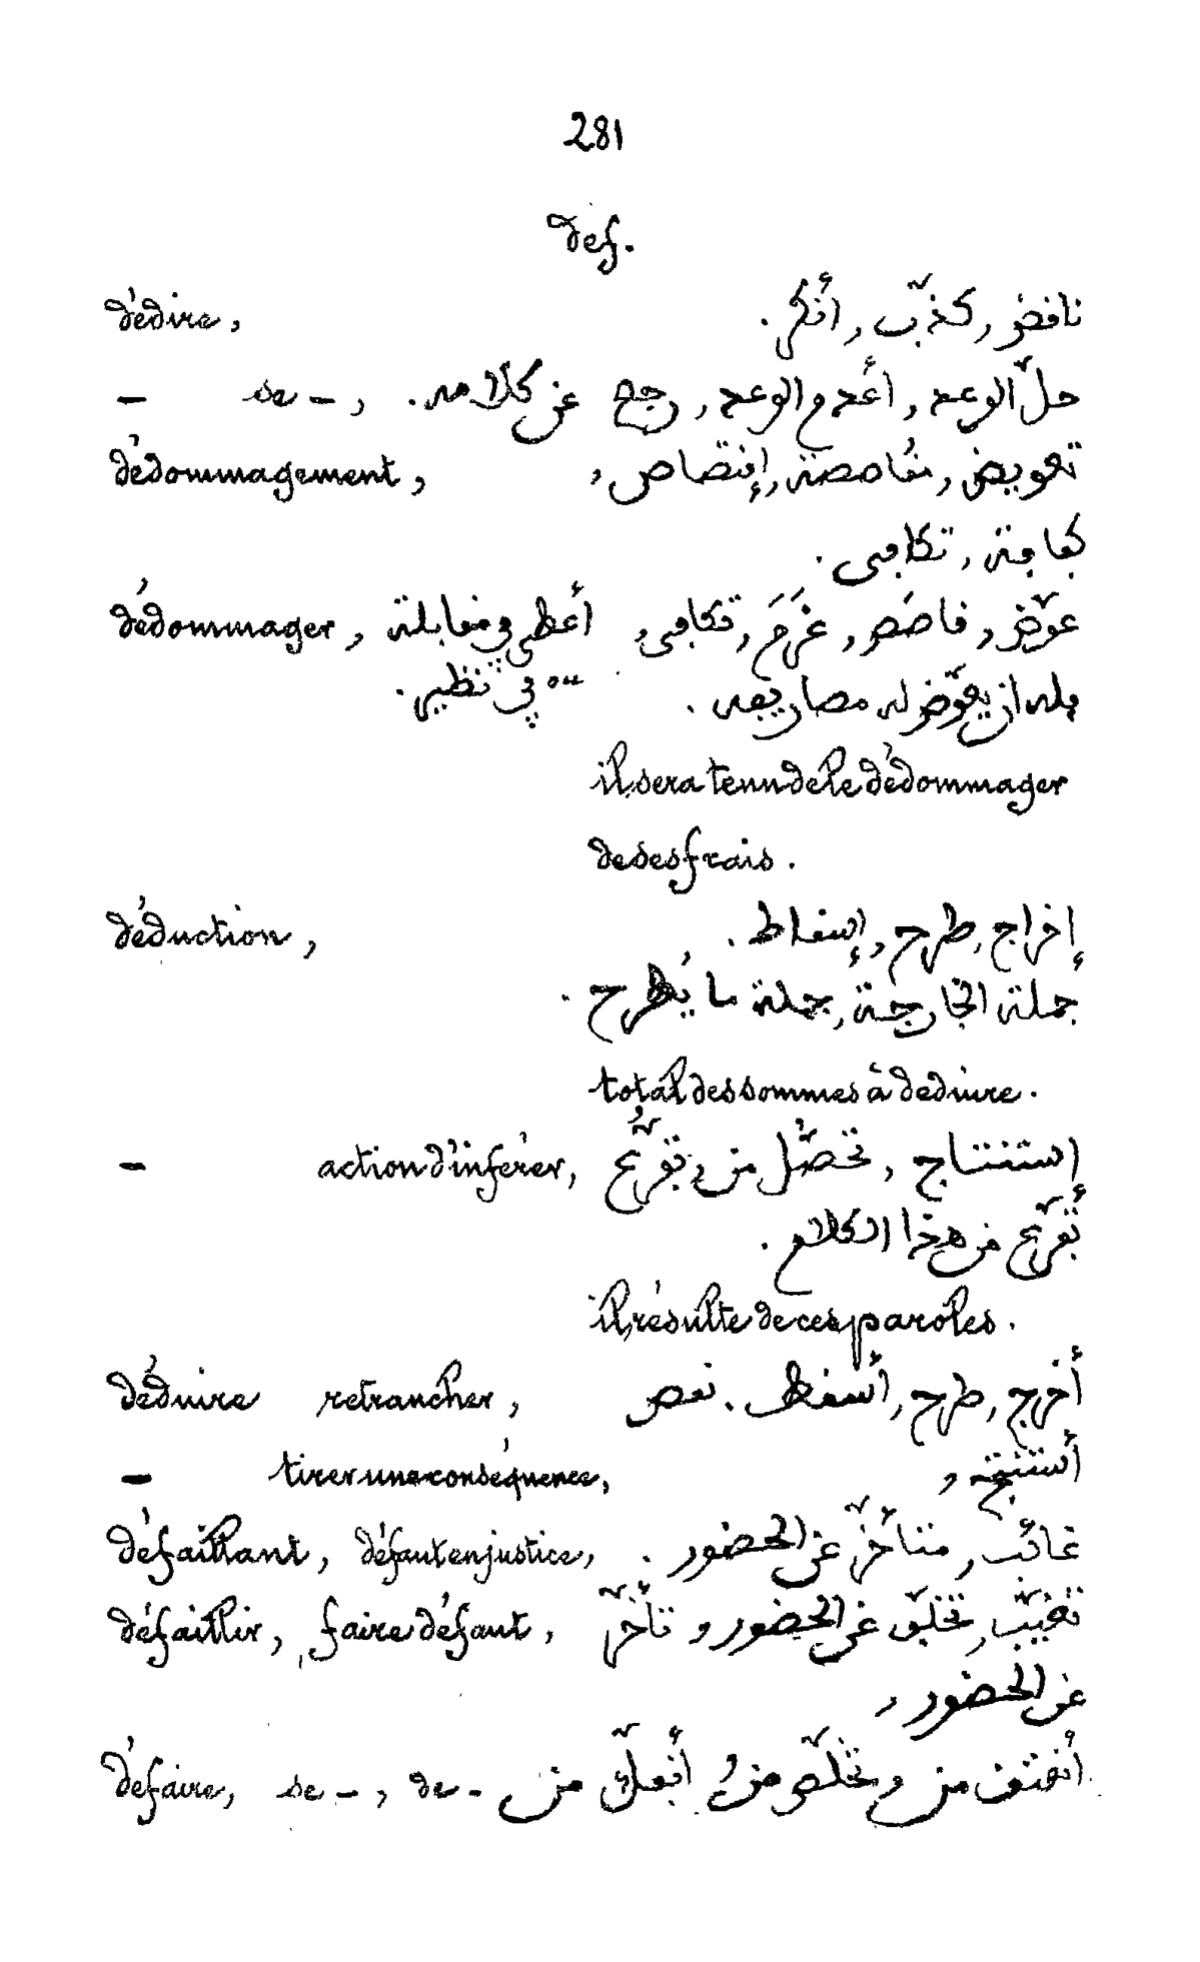 281
def.
dédire, ناقض, كذّب, أنكر.
— se —, حلّ الوعد, أعدم الوعد, رجع عن كلامه.
dédommagement, تعويض, مُقاصصة, إقتصاص,
تكافى.
dédommager, عوّض, قاصَص, غَرَمَ, تكافى, أعطى في مقابلة
يلزمه ان يعوّض له مصاريفه. في نظير.
il sera tenu de le dédommager
de ses frais.
déduction, إخراج, طرح, إسقاط.
جملة الخارجة, جملة ما يُطرح.
total des sommes à déduire.
— action d'inférer, إستنتاج, تحصّل من, تفرّع
تفرّع من هذا الكلام.
il résulte de ces paroles.
déduire retrancher, أخرج, طرح, أسقط. نقص
— tirer une conséquence, أستنتج,
défaillant, défaut en justice, غائب, متأخّر عن الحضور.
défaillir, faire défaut, تغيّب, تخلّف عن الحضور, تأخّر
عن الحضور,
défaire, se —, de — من, تخلّص من, من